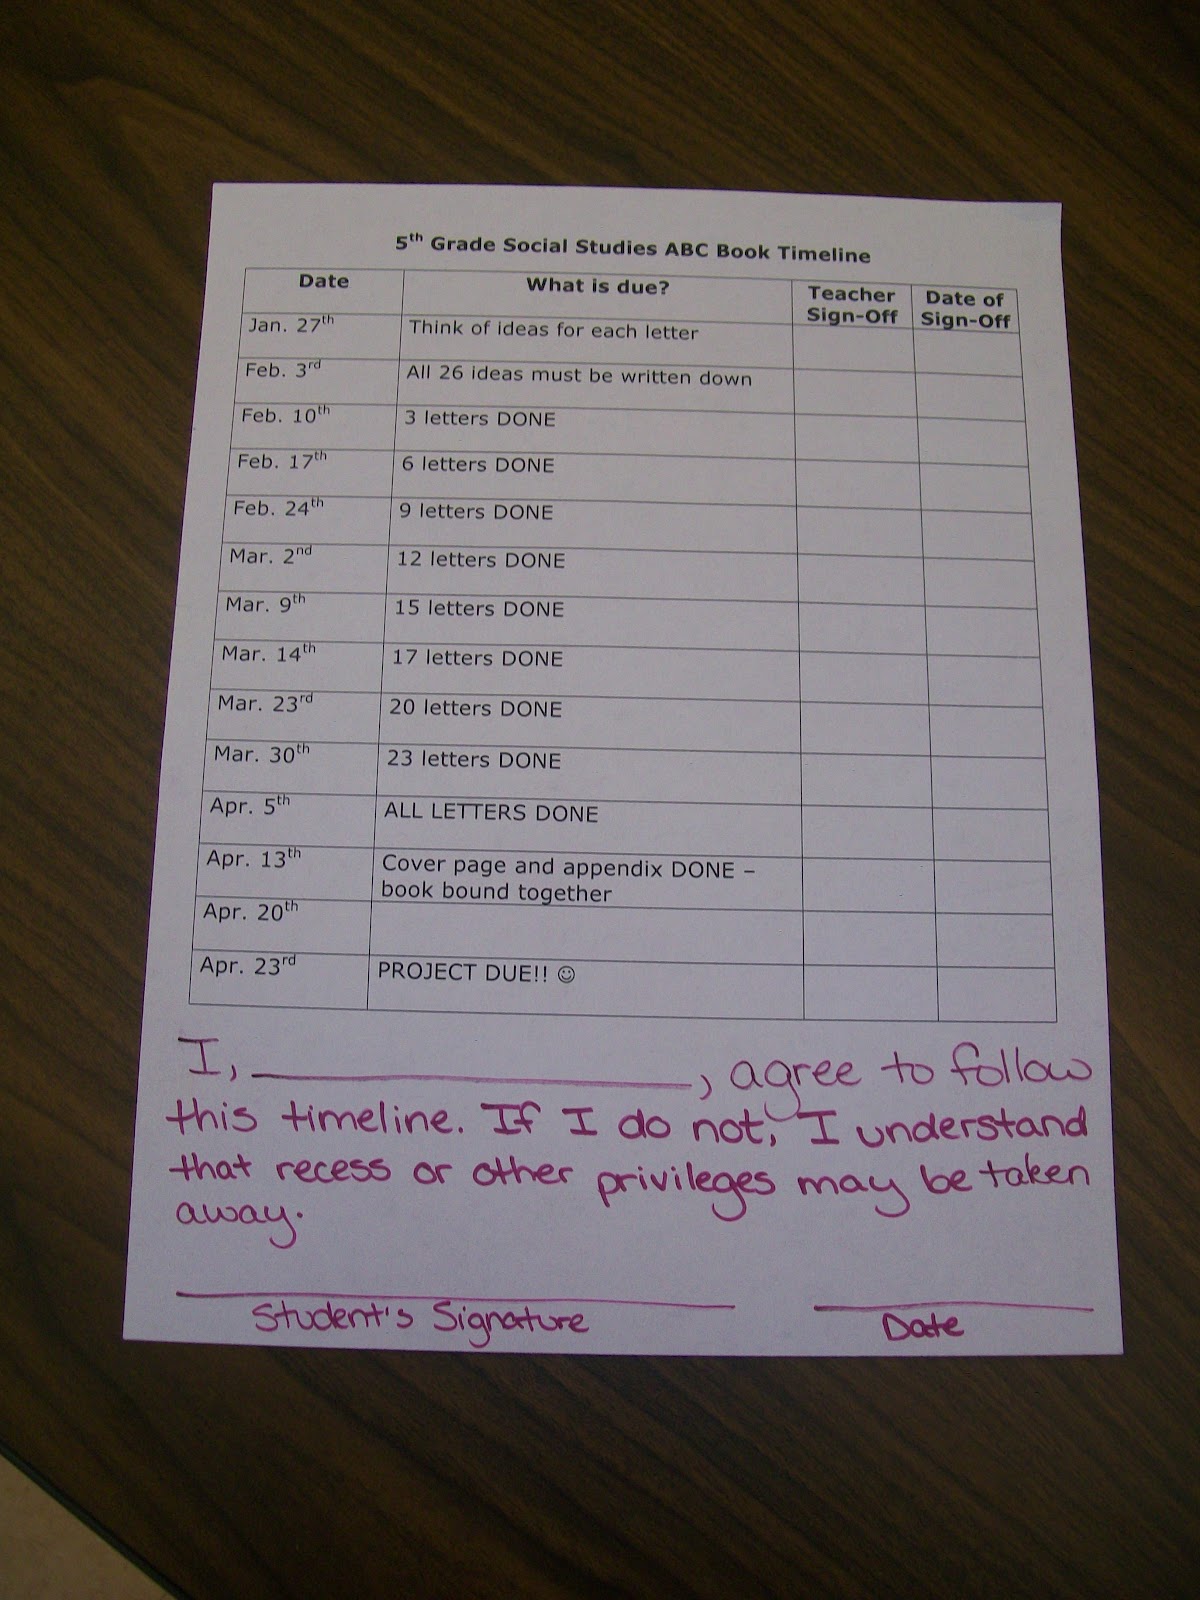 5th Grade Social Studies ABC Book Timeline
Date What is due? Teacher Sign-Off Date of Sign-Off
Jan. 27th Think of ideas for each letter
Feb. 3rd All 26 ideas must be written down
Feb. 10th 3 letters DONE
Feb. 17th 6 letters DONE
Feb. 24th 9 letters DONE
Mar. 2nd 12 letters DONE
Mar. 9th 15 letters DONE
Mar. 14th 17 letters DONE
Mar. 23rd 20 letters DONE
Mar. 30th 23 letters DONE
Apr. 5th ALL LETTERS DONE
Apr. 13th Cover page and appendix DONE –
book bound together
Apr. 20th
Apr. 23rd PROJECT DUE!! ☺
I, ____________________, agree to follow
this timeline. If I do not, I understand
that recess or other privileges may be taken
away.
Student's Signature Date